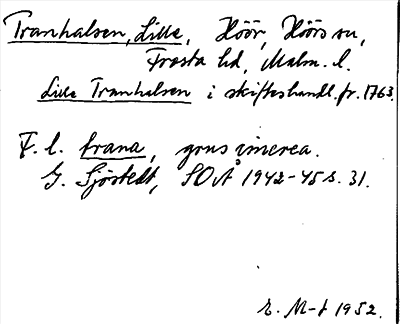 Tranhalsen, Lilla, Höör, Höörs sn,
Frosta hd, Malm. l.
Lilla Tranhalsen i skifteshandl. fr. 1763.
F. l. trana, grus cinerea.
G. Sjöstedt, SOÅ 1942-45 s. 31.
E. M-t 1952.